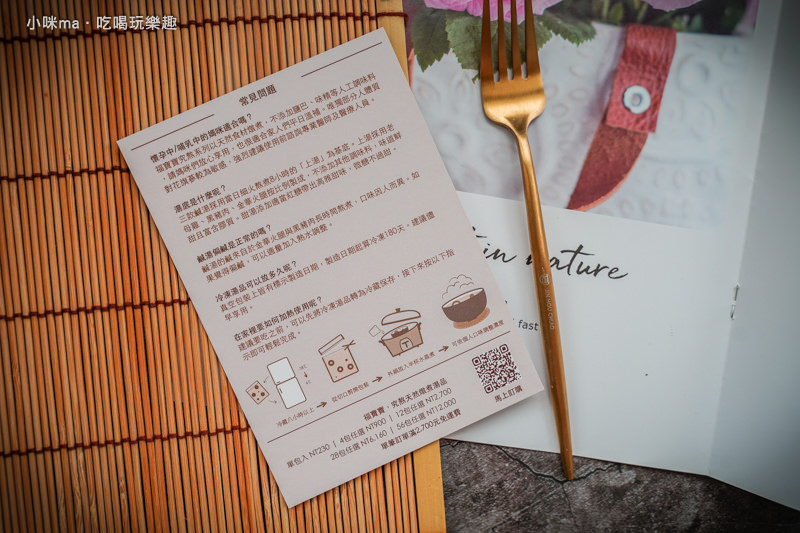 小咪ma•吃喝玩樂趣
常見問題
懷孕中/哺乳中的媽咪適合嗎？
福寶寶究熬系列以天然食材燉煮，不添加鹽巴、味精等人工調味料
請媽咪們放心享用，也很適合家人們平日溫補。唯獨部分人體質
對花旗蔘較為敏感，強烈建議使用前諮詢專業醫師及醫療人員。
湯底是什麼呢？
三款鹹湯採用當日細火熬煮8小時的「上湯」為基底。上湯採用老
母雞、黑豬肉、金華火腿按比例製成，不添加其他調味料，味道鮮
甜且富含膠質。甜湯添加適當紅糖帶出高雅甜味，微糖不過甜。
鹹湯偏鹹是正常的嗎？
鹹湯的鹹來自於金華火腿與黑豬肉長時間熬煮，口味因人而異。如
果覺得偏鹹，可以適量加入熱水調整。
冷凍湯品可以放多久呢？
真空包裝上皆有標示製造日期，製造日期起算冷凍180天，建議儘
早享用。
在家裡要如何加熱使用呢？
建議要吃之前，可以先將冷凍湯品轉為冷藏保存，接下來按以下指
示即可輕鬆完成。
冷藏八小時以上
從切口剪開包裝
外鍋放入半杯水蒸煮
可依個人口味調整濃度
馬上訂購
福寶寶•究熬天然燉煮湯品
單包入 NT230 | 4包任選 NT900 | 12包任選 NT2,700
28包任選 NT6,160 | 56包任選 NT12,000
單筆訂單滿2,700元免運費
in nature
fast